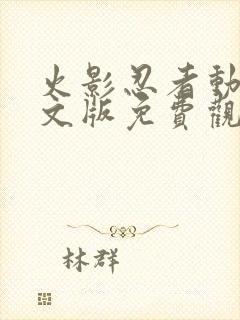 火影忍者動
文版免費觀
林群